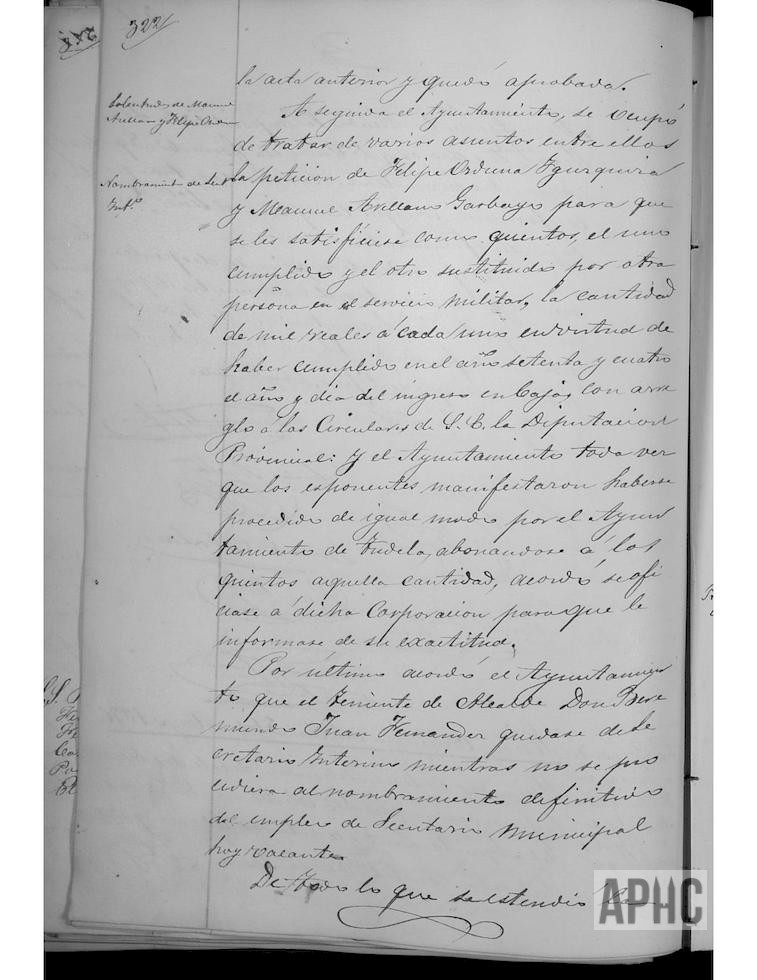 322
la acta anterior y quedó aprobada.
Solicitudes de Manuel
Arellano y Felipe Orduna
A seguida el Ayuntamiento, se ocupó
de tratar de varios asuntos entre ellos
Nombramiento de Sect
Int.º
la petición de Felipe Orduna
y Manuel Arellano Garbayo para que
se les satisficiese como quientos, el uno
cumplido y el otro sustituido por otra
persona en el servicio militar, la cantidad
de mil reales á cada uno en virtud de
haber cumplido en el año setenta y cuatro
el año y dia del ingreso en Caja, con arre
glo á las Circulares de S. E. la Diputacion
Provincial: y el Ayuntamiento toda vez
que los esponentes manifestaron haberse
procedido de igual modo por el Ayun
tamiento de Tudela, abonandose á los
quientos aquella cantidad, acordó se ofi
ciase á dicha Corporacion para que le
informase de su exactitud.
Por último acordó el Ayuntamien
to que el Teniente de Alcalde Don Bere
mundo Juan Fernandez quedase de Se
cretario Interino mientras no se pro
cediera al nombramiento definitivo
del empleo de Secretario municipal
hoy vacante.
De todo lo que se estendió la
APHC